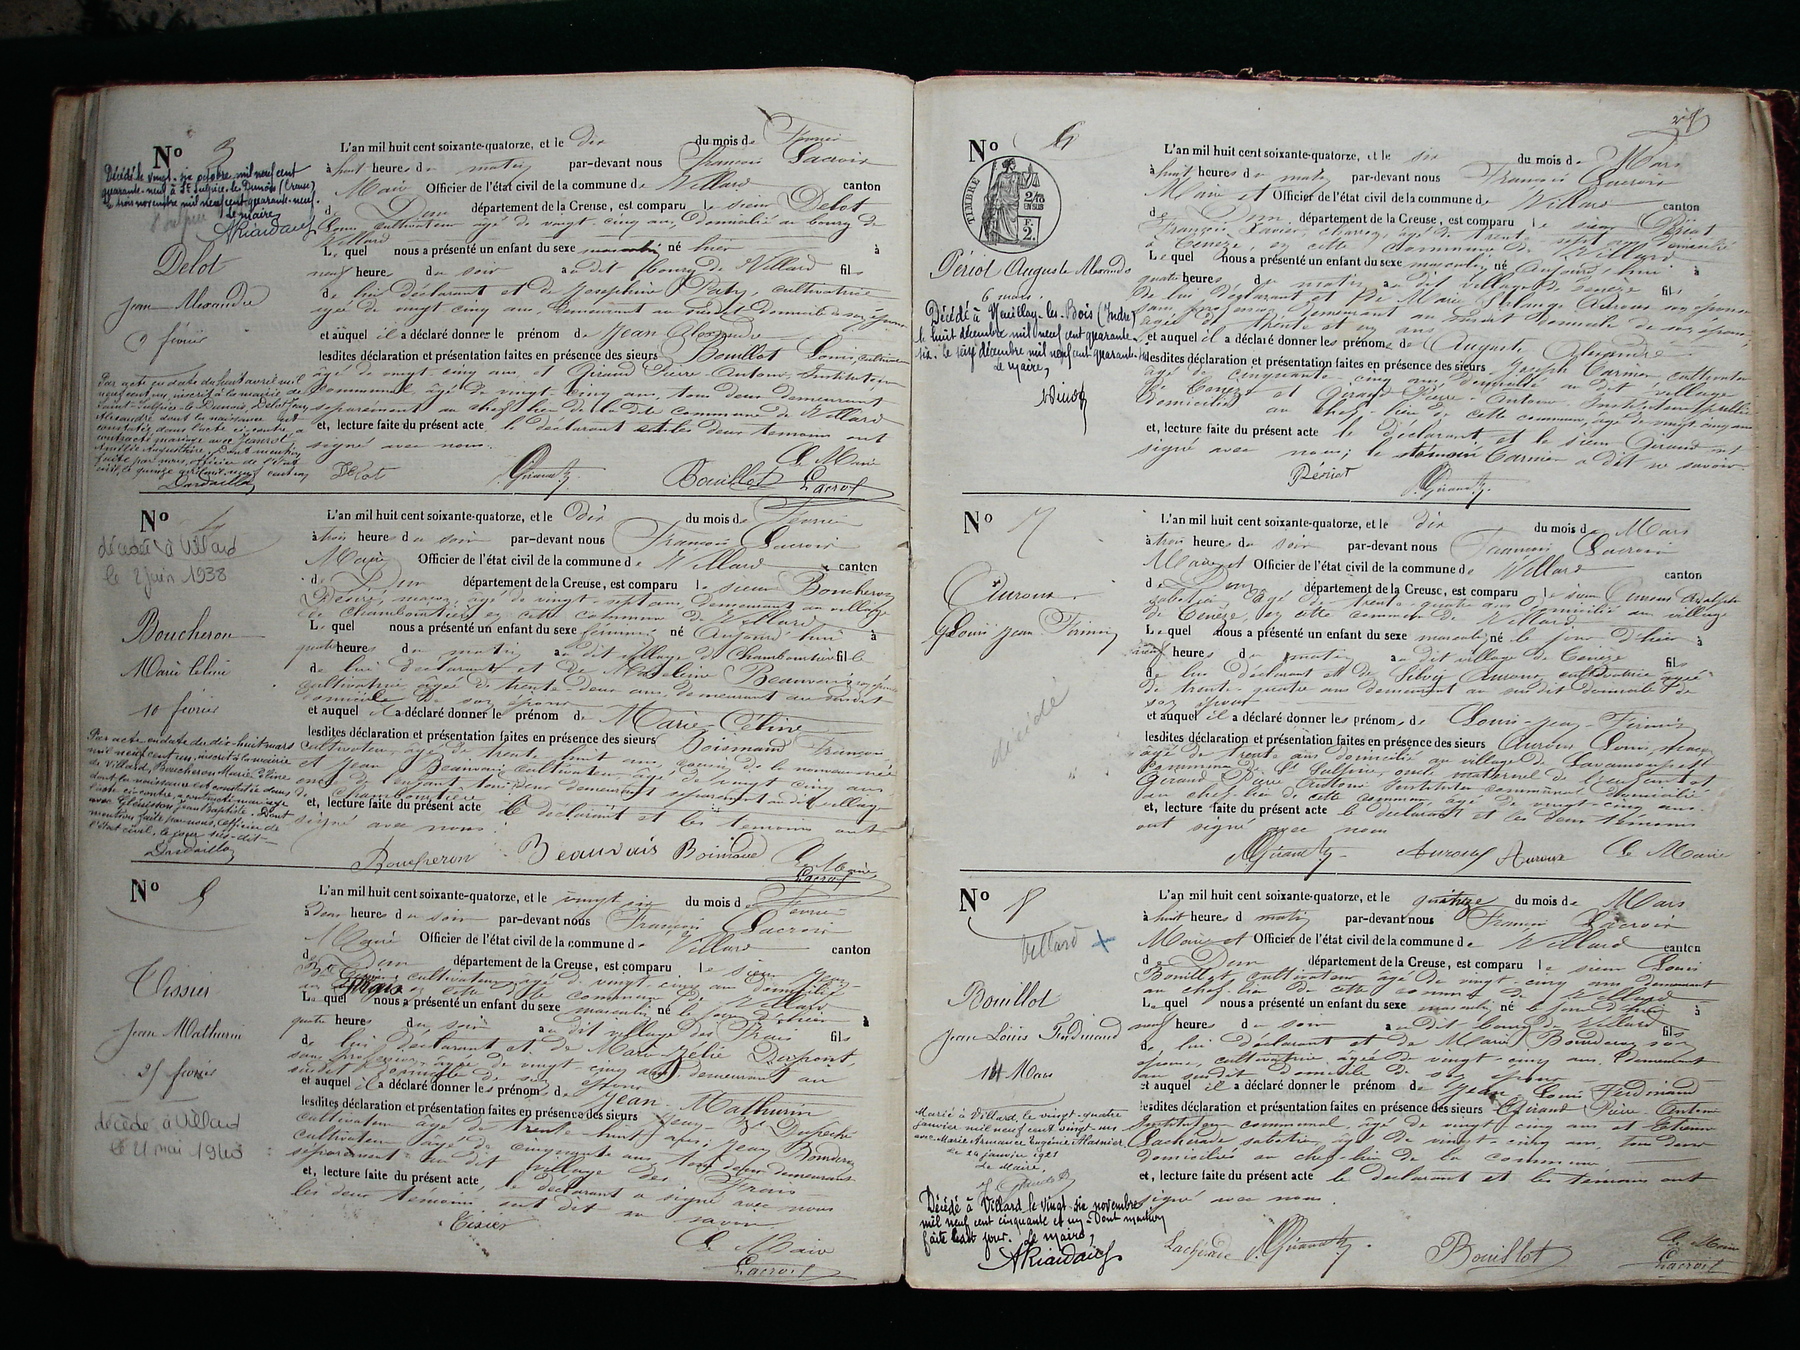 No 3
Décédé le vingt-six octobre mil neuf cent
quarante-neuf à St Sulpice-le-Dunois (Creuse)
Le trois novembre mil neuf cent quarante-neuf.
Le Maire,
Delot
Jean Alexandre
9 février
Par acte en date du huit avril mil
neuf cent un, inscrit à la mairie de
Saint-Sulpice-le-Dunois, Delot Jean
Alexandre dont la naissance est
constatée dans l'acte ci-contre, a
contracté mariage avec
Augustine. Dont mention
faite par nous, officier de l'état
civil, le quinze avril mil neuf cent un
Dardaillon
L'an mil huit cent soixante-quatorze, et le dix du mois de Février
à huit heures du matin par-devant nous François Lacroix
Maire Officier de l'état civil de la commune de Villard canton
de Dun département de la Creuse, est comparu le sieur Delot
Louis cultivateur âgé de vingt-cinq ans, domicilié au bourg de
Villard
Lequel nous a présenté un enfant du sexe masculin né hier à
neuf heures du soir au dit bourg de Villard fils
de lui déclarant et de Joséphine Paty, cultivatrice
âgée de vingt cinq ans, demeurant au susdit domicile de son époux
et auquel il a déclaré donner le prénom de Jean Alexandre
lesdites déclaration et présentation faites en présence des sieurs Bouillot Louis, cultivateur
âgé de vingt cinq ans et Giraud Pierre-Antoine, Instituteur
communal, âgé de vingt-cinq ans, tous deux demeurant
séparément au chef-lieu de la dite commune de Villard
et, lecture faite du présent acte, le déclarant et les deux témoins ont
signé avec nous.
Le Maire
Delot Giraud Bouillot Lacroix
No 4
décédée à Villard
le 2 juin 1938
Boucheron
Marie Céline
10 février
Par acte en date du dix-huit mars
mil neuf cent un, inscrit à la mairie
de Villard, Boucheron Marie Céline
dont la naissance est constatée dans
l'acte ci-contre, a contracté mariage
avec Jean Baptiste. Dont
mention faite par nous, officier de
l'état civil, le jour sus-dit
Dardaillon
L'an mil huit cent soixante-quatorze, et le Dix du mois de Février
à trois heures du soir par-devant nous François Lacroix
Maire Officier de l'état civil de la commune de Villard canton
de Dun département de la Creuse, est comparu le sieur Boucheron
Désiré, maçon, âgé de vingt-sept ans, demeurant au village
de Chamboumtière en cette commune de Villard
Lequel nous a présenté un enfant du sexe féminin né Aujourd'hui à
quatre heures du matin au dit village de fille
de lui déclarant et de Madeleine Beauvais son épouse
cultivatrice, âgée de trente-deux ans, demeurant au susdit
domicile de son époux
et auquel il a déclaré donner le prénom de Marie-Céline
lesdites déclaration et présentation faites en présence des sieurs Boismand François
cultivateur, âgé de trente huit ans, cousin de la nouveau-née
et Jean Beauvais cultivateur, âgé de vingt cinq ans
oncle de l'enfant, tous deux demeurant séparément au dit village
de
et, lecture faite du présent acte le déclarant et les témoins ont
signé avec nous.
Boucheron Beauvais Boimand Le Maire
Lacroix
No 5
Tissier
Jean Mathurin
25 février
décédé à Villard
le 21 mai 1943
L'an mil huit cent soixante-quatorze, et le vingt six du mois de Février
à deux heures du soir par-devant nous François Lacroix
Maire Officier de l'état civil de la commune de Villard canton
de Dun département de la Creuse, est comparu le sieur Jean-
Bte Tissier cultivateur, âgé de vingt cinq ans domicilié
en cette dite commune de Villard
Lequel nous a présenté un enfant du sexe masculin né le jour d'hier à
quatre heures du soir au dit village des Frais fils
de lui déclarant et de Marie-Zélie Desport,
sans profession, âgée de vingt-cinq ans demeurant au
susdit domicile de son époux
et auquel il a déclaré donner les prénoms de Jean-Mathurin
lesdites déclaration et présentation faites en présence des sieurs Jean-Bte
cultivateur âgé de trente huit ans; Jean
cultivateur âgé de cinquante ans tous deux demeurant
séparément au dit village des Frais
et, lecture faite du présent acte, le déclarant a signé avec nous
les deux témoins ont dit ne savoir.
Tissier
Le Maire
Lacroix
No 6
TIMBRE
2/10
EN SUS
F.
2.
Périot Auguste Alexandre
6 mars.
Décédé à Neuillay-les-Bois (Indre)
le huit décembre mil neuf cent quarante-
six. Le seize décembre mil neuf cent quarante-six
Le Maire,
L'an mil huit cent soixante-quatorze, et le six du mois de Mars
à huit heures du matin par-devant nous François Lacroix
Maire et Officier de l'état civil de la commune de Villard canton
de Dun département de la Creuse, est comparu le sieur Périot
François Xavier, charron, âgé de trente-sept ans domicilié
à Cenèze, en cette commune de Villard
Lequel nous a présenté un enfant du sexe masculin né Aujourd'hui à
quatre heures du matin au dit village de Cenèze fils
de lui déclarant et de Marie Solange son épouse
sans profession, demeurant au susdit domicile de son époux,
âgée de trente et un ans
et auquel il a déclaré donner les prénoms de Auguste Alexandre
lesdites déclaration et présentation faites en présence des sieurs Joseph Carmier cultivateur
âgé de cinquante cinq ans domicilié au dit village
de Cenèze et Giraud Pierre-Antoine Instituteur public
domicilié au chef-lieu de cette commune, âgé de vingt cinq ans
et, lecture faite du présent acte le déclarant et le sieur Giraud ont
signé avec nous; le témoin Carmier a dit ne savoir.
Périot Giraud
No 7
Auroux
Louis Jean Firmin
décédé
L'an mil huit cent soixante-quatorze, et le dix du mois de Mars
à trois heures du soir par-devant nous François Lacroix
Maire et Officier de l'état civil de la commune de Villard canton
de Dun département de la Creuse, est comparu le sieur Auroux Adolphe
sabotier âgé de trente-quatre ans domicilié au village
de Cenèze, en cette commune de Villard
Lequel nous a présenté un enfant du sexe masculin né le jour d'hier à
neuf heures du matin au dit village de Cenèze fils
de lui déclarant et de Silvie Auroux cultivatrice âgée
de trente-quatre ans demeurant au susdit domicile de
son époux
et auquel il a déclaré donner les prénoms de Louis-Jean-Firmin
lesdites déclaration et présentation faites en présence des sieurs Auroux Louis,
âgé de trente ans domicilié au village de
commune de St Sulpice, oncle maternel de l'enfant et
Giraud Pierre Antoine Instituteur communal domicilié
au chef-lieu de cette commune, âgé de vingt-cinq ans.
et, lecture faite du présent acte le déclarant et les deux témoins
ont signé avec nous
Giraud Auroux Auroux Le Maire
No 8
Villard +
Bouillot
Jean Louis Ferdinand
14 Mars
Marié à Villard, le vingt-quatre
janvier mil neuf cent vingt-un
avec Marie Armance Eugénie Masnier
Le 24 janvier 1921
Le Maire,
Décédé à Villard le vingt-six novembre
mil neuf cent cinquante et un. Dont mention
faite ledit jour. Le maire,
L'an mil huit cent soixante-quatorze, et le quatorze du mois de Mars
à huit heures du matin par-devant nous François Lacroix
Maire et Officier de l'état civil de la commune de Villard canton
de Dun département de la Creuse, est comparu le sieur Louis
Bouillot, cultivateur âgé de vingt-cinq ans demeurant
au chef-lieu de cette commune de Villard
Lequel nous a présenté un enfant du sexe masculin né le jour d'hier à
neuf heures du soir au dit bourg de Villard fils
de lui déclarant et de Marie son
épouse, cultivatrice, âgée de vingt-cinq ans, demeurant
au susdit domicile de son époux
et auquel il a déclaré donner le prénom de Jean Louis Ferdinand
lesdites déclaration et présentation faites en présence des sieurs Giraud Pierre-Antoine
Instituteur communal, âgé de vingt-cinq ans et Etienne
Lacherade sabotier, âgé de vingt-cinq ans, tous deux
domiciliés au chef-lieu de la commune
et, lecture faite du présent acte le déclarant et les témoins ont
signé avec nous.
Lacherade Giraud Bouillot Le Maire
Lacroix